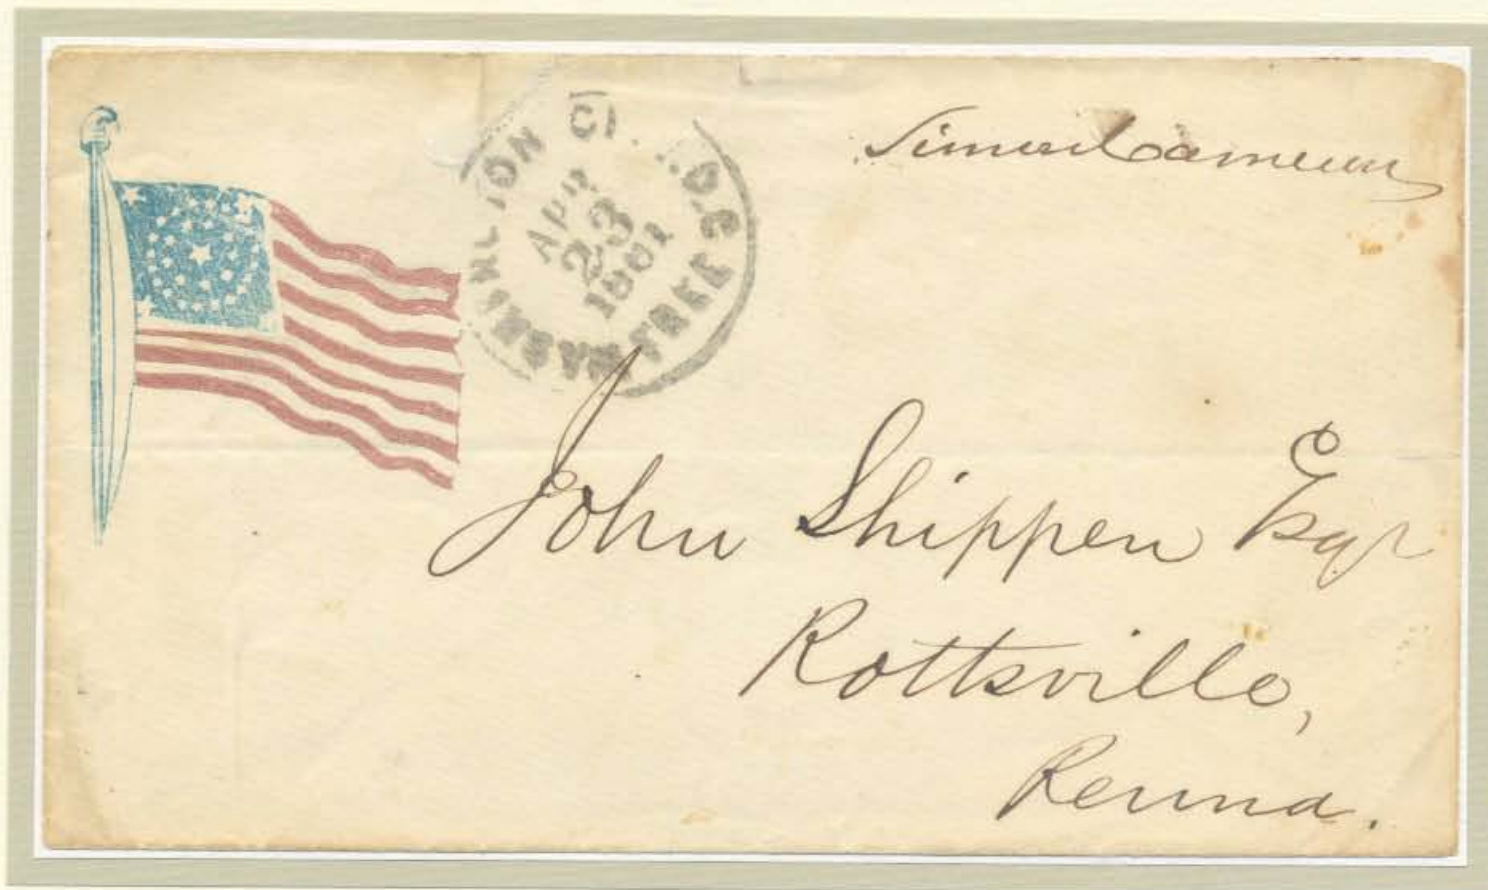 WASHINGTON CI D.C.
APR
23
1861
FREE
Simon Cameron
John Shippen Esqr
Pottsville,
Penna.